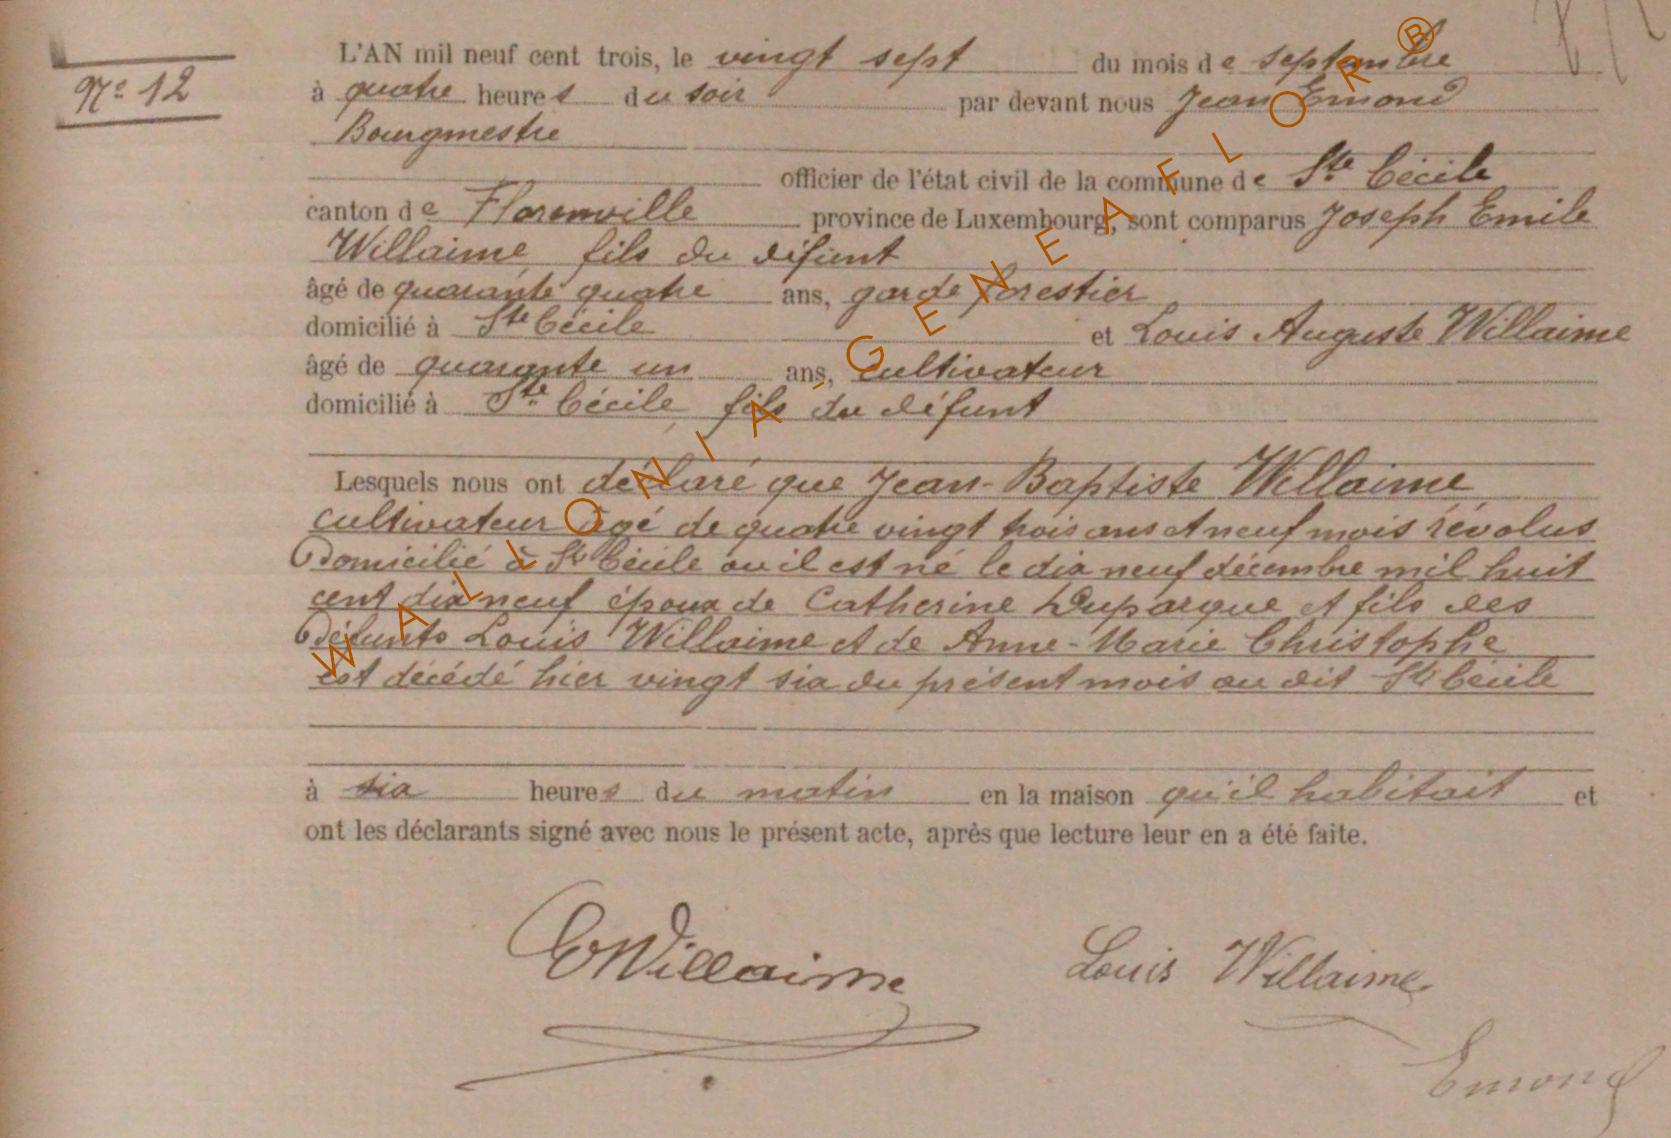 Nº 12
L'AN mil neuf cent trois, le vingt sept du mois de septembre
à quatre heures du soir par devant nous Jean Emond
Bourgmestre
officier de l'état civil de la commune de Ste Cécile
canton de Florenville province de Luxembourg, sont comparus Joseph Emile
Willaime fils du défunt
âgé de quarante quatre ans, garde forestier
domicilié à Ste Cécile et Louis Auguste Willaime
âgé de quarante un ans, cultivateur
domicilié à Ste Cécile, fils du défunt
Lesquels nous ont déclaré que Jean-Baptiste Willaime
cultivateur âgé de quatre vingt trois ans et neuf mois révolus
Domicilié à Ste Cécile ou il est né le dix neuf décembre mil huit
cent dix neuf époux de Catherine Duparque et fils des
Défunts Louis Willaime et de Anne-Marie Christophe
est décédé hier vingt six du présent mois au dit Ste Cécile
à six heures du matin en la maison qu'il habitait et
ont les déclarants signé avec nous le présent acte, après que lecture leur en a été faite.
EWillaime
Louis Willaime
Emond
WALLONIA-GENEAFLOR®